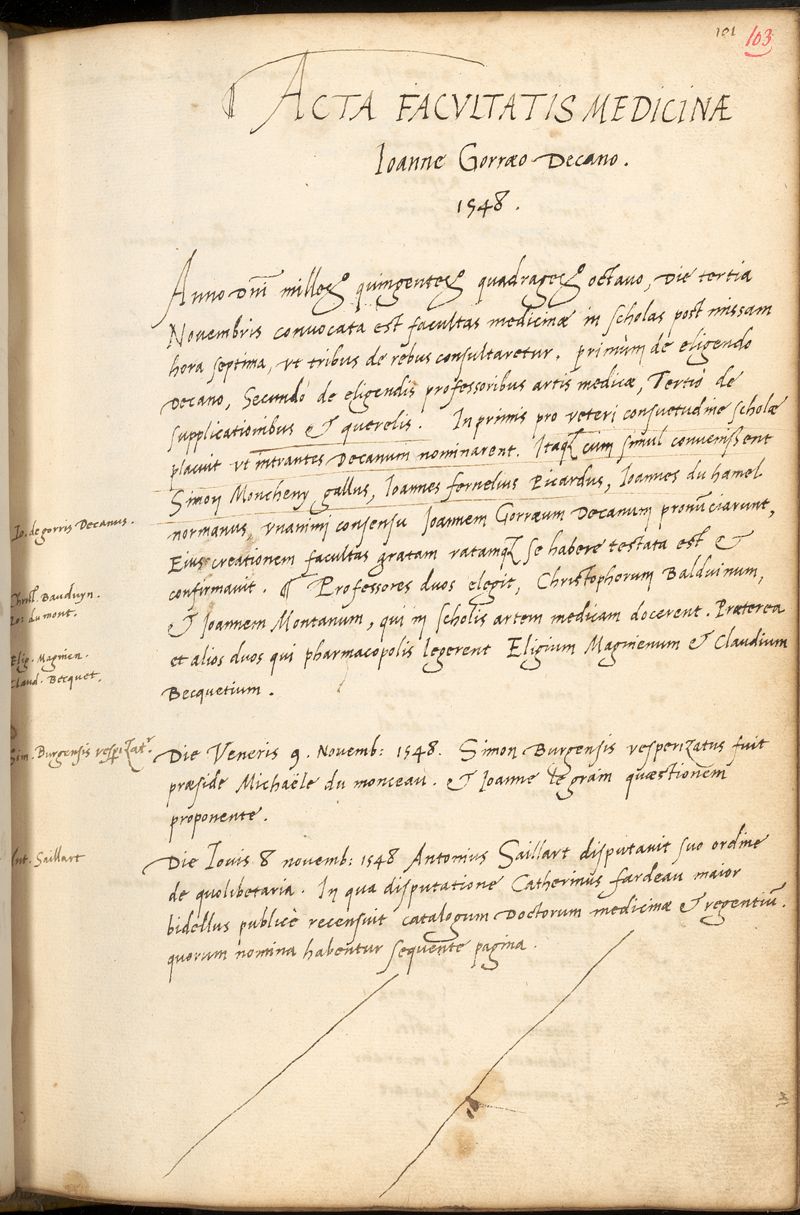 101 103
¶ ACTA FACVLTATIS MEDICINÆ
Ioanne Gorræo Decano.
1548.
Anno Dñi milleso quingenteso quadrageso octauo, Die tertia
Nouembris conuocata est facultas medicinæ in scholas post missam
hora septima, vt tribus de rebus consultaretur. primùm de eligendo
Decano, Secundò de eligendis professoribus artis medicæ, Tertiò de
supplicationibus & querelis. Inprimis pro veteri consuetudine scholæ
placuit vt intrantes Decanum nominarent. Itaq; cùm simul conuenissent
Simon Moncheny gallus, Ioannes fernelius Picardus, Ioannes du hamel
normanus, vnanimi consensu Ioannem Gorræum Decanum pronũciarunt,
Io. de gorris Decanus.
Eius creationem facultas gratam ratamq; se habere testata est &
confirmauit. ¶ Professores duos elegit, Christophorum Balduinum,
Christ. Bauduyn.
& Ioannem Montanum, qui in scholis artem medicam docerent. Præterea
Io: du mont.
et alios duos qui pharmacopolis legerent Eligium Magnenum & Claudium
Elig. Magnien.
Claud. Becquet.
Becquetium.
Sim. Burgensis vesperizatr.
Die Veneris 9. Nouemb: 1548. Simon Burgensis vesperizatus fuit
præside Michaële du monceau. & Ioanne le gram quæstionem
proponente.
Ant. Saillart
Die Iouis 8 nouemb: 1548 Antonius Saillart disputauit suo ordine
de quolibetaria. In qua disputatione Catherinus fardeau maior
bidellus publicè recensuit catalogum Doctorum medicinæ & regentiũ.
quorum nomina habentur sequente pagina.